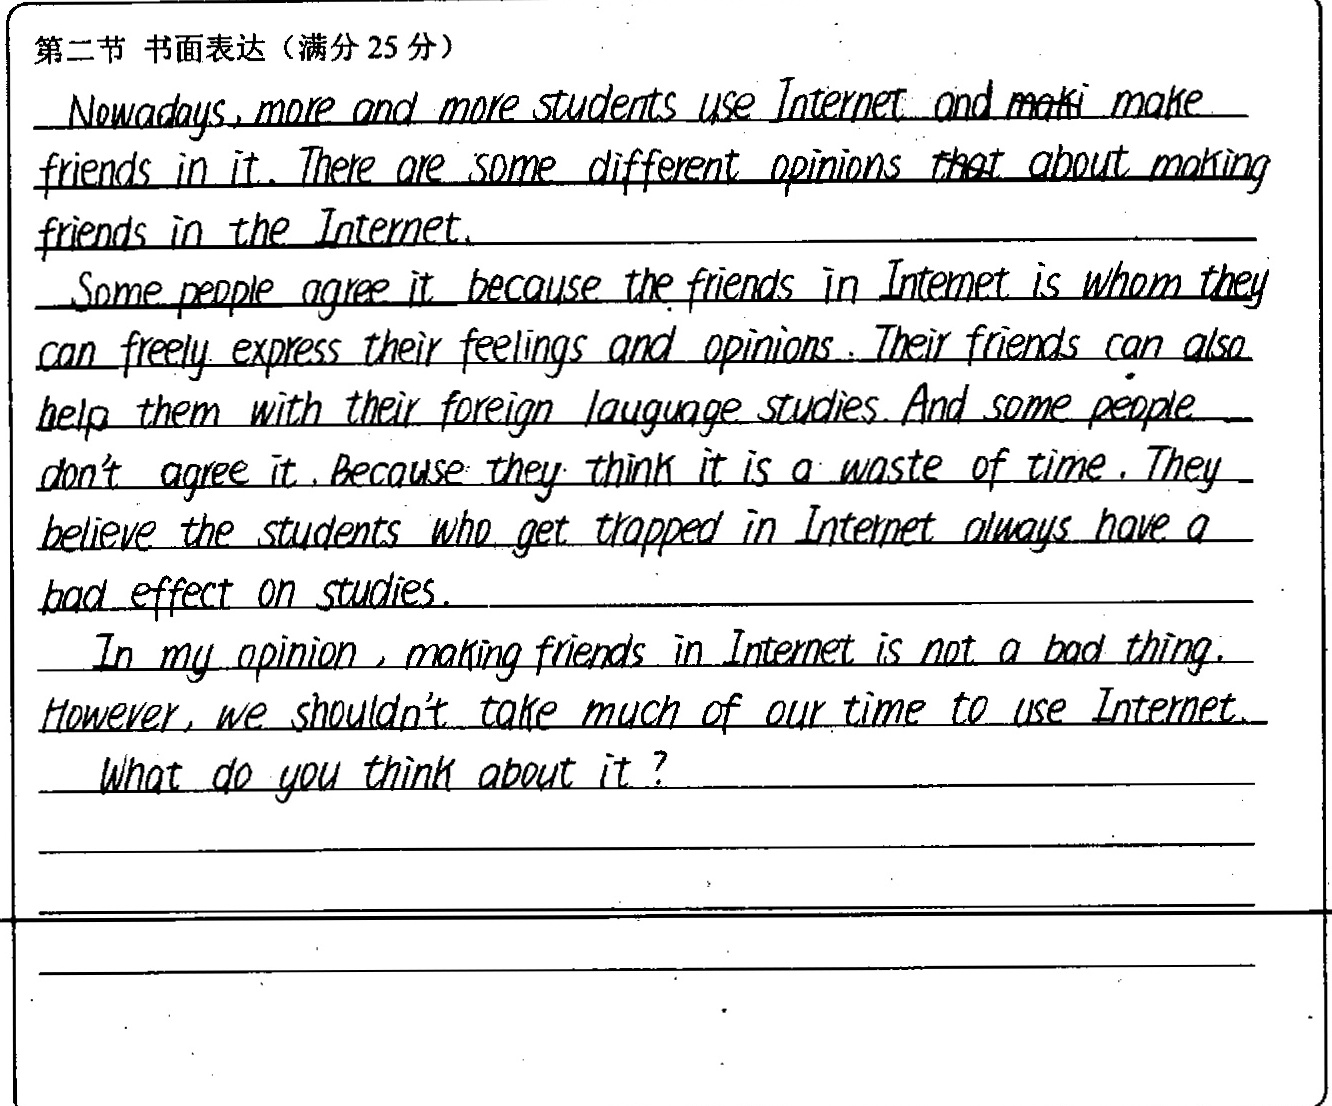 第二节 书面表达（满分 25 分）
Nowadays, more and more students use Internet and maki make
friends in it. There are some different opinions that about making
friends in the Internet.
Some people agree it because the friends in Internet is whom they
can freely express their feelings and opinions. Their friends can also
help them with their foreign lauguage studies. And some people
don't agree it. Because they think it is a waste of time. They
believe the students who get trapped in Internet always have a
bad effect on studies.
In my opinion, making friends in Internet is not a bad thing.
However, we shouldn't take much of our time to use Internet.
What do you think about it?